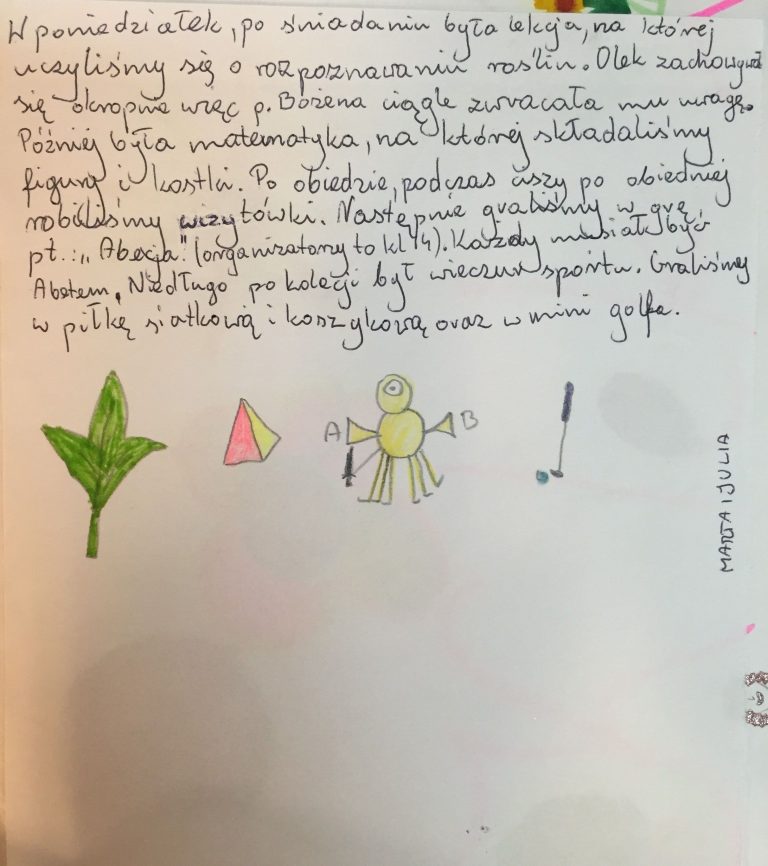 W poniedziałek, po śniadaniu była lekcja, na której
uczyliśmy się o rozpoznawaniu roślin. Olek zachowywał
się okropnie więc p. Bożena ciągle zwracała mu uwagę.
Później była matematyka, na której składaliśmy
figury i kostki. Po obiedzie, podczas ciszy po obiedniej
robiliśmy wizytówki. Następnie graliśmy w grę
pt.: „Abecja" (organizatorzy to kl 4). Każdy musiał być
Abetem. Niedługo po kolacji był wieczór sportu. Graliśmy
w piłkę siatkową i koszykową oraz w mini golfa.
A B
MARTA I JULIA